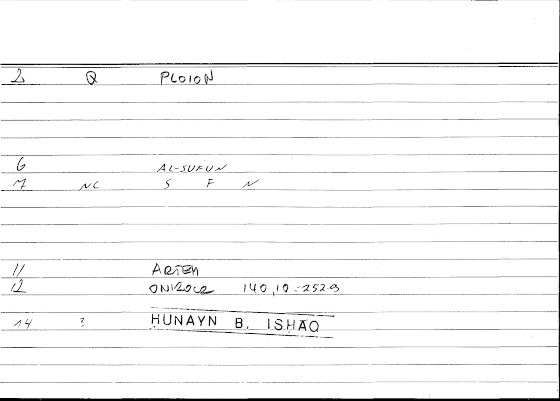 2 Q PLOION
6 AL-SUFUN
7 NC S F N
11 ARTEM
12 ONIROCR 140,10=252,9
14 ? HUNAYN B. ISHAQ